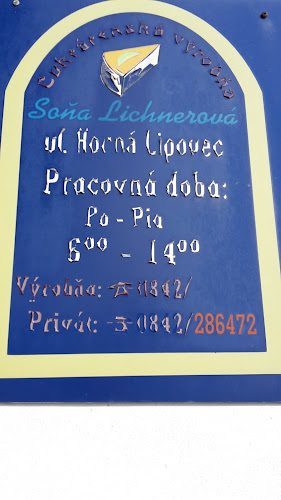 Cukrárenská výrobňa
Soňa Lichnerová
ul. Horná Lipovec
Pracovná doba:
Po - Pia
6⁰⁰ - 14⁰⁰
Výrobňa: ☎ 0842/
Privát: ☎ 0842/286472